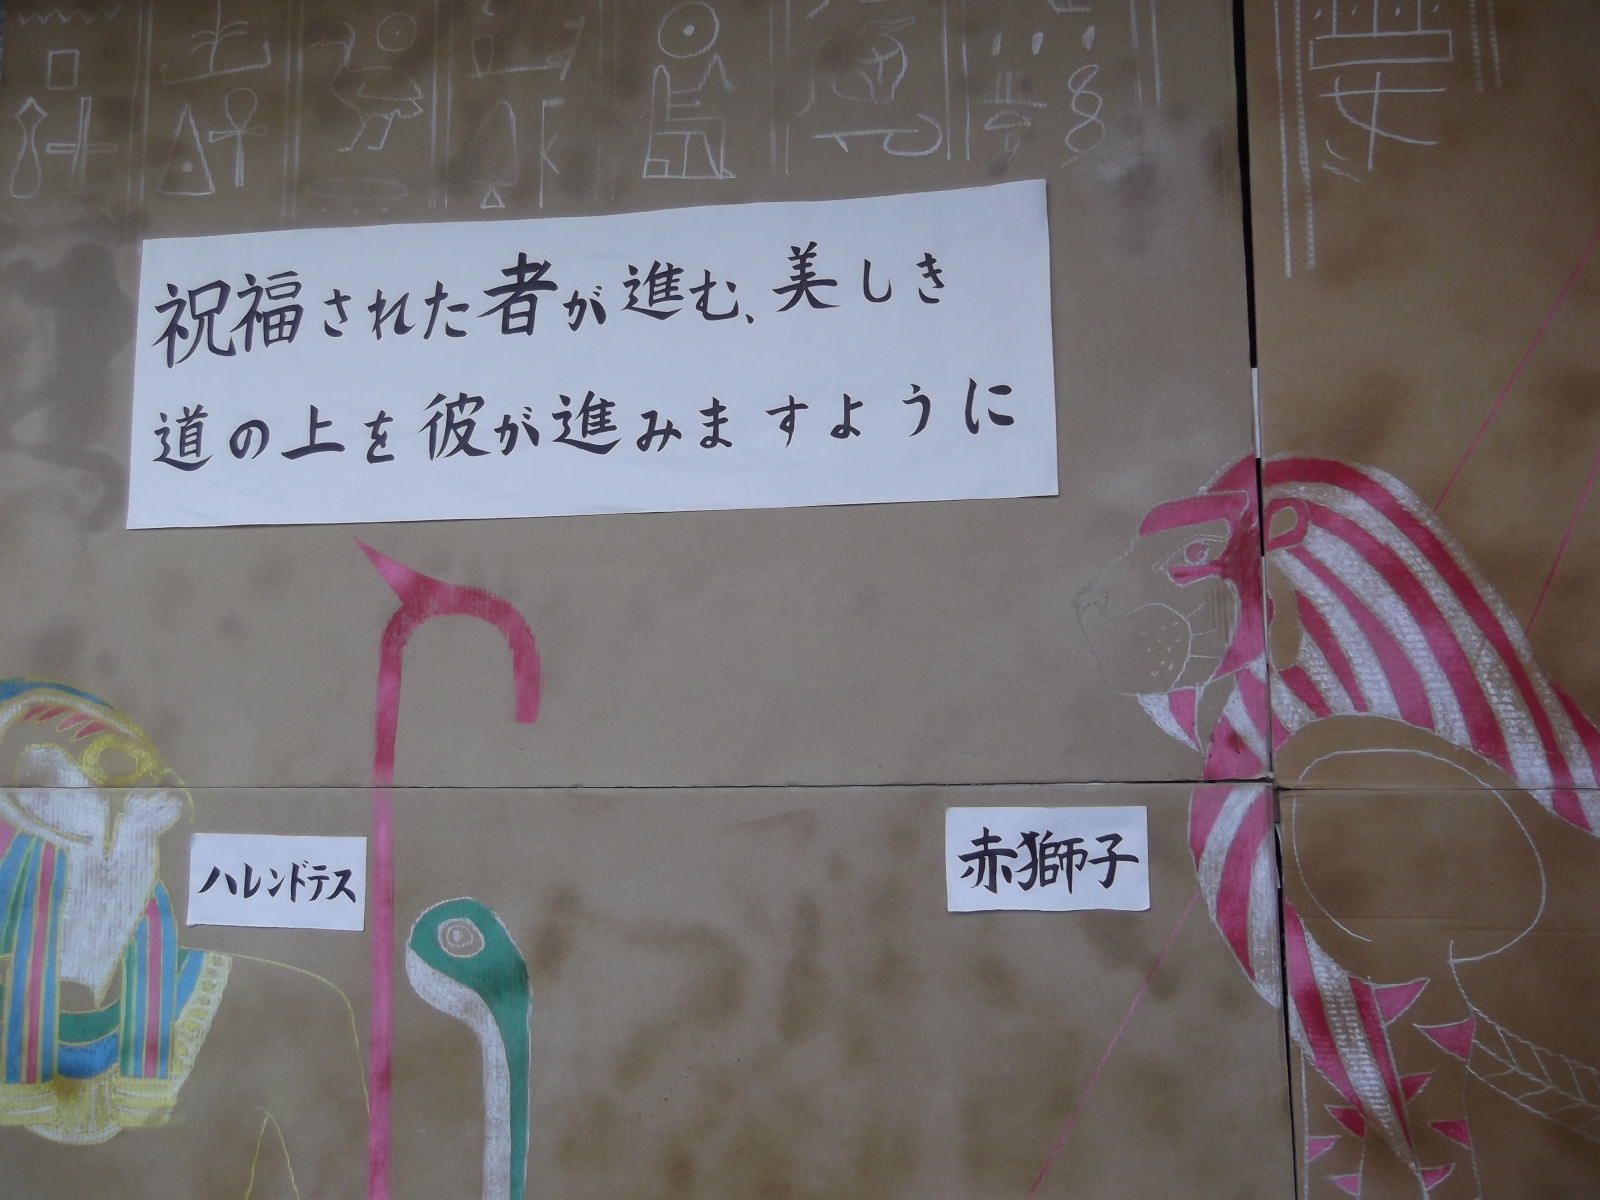 祝福された者が進む、美しき
道の上を彼が進みますように
ハレンドテス
赤獅子